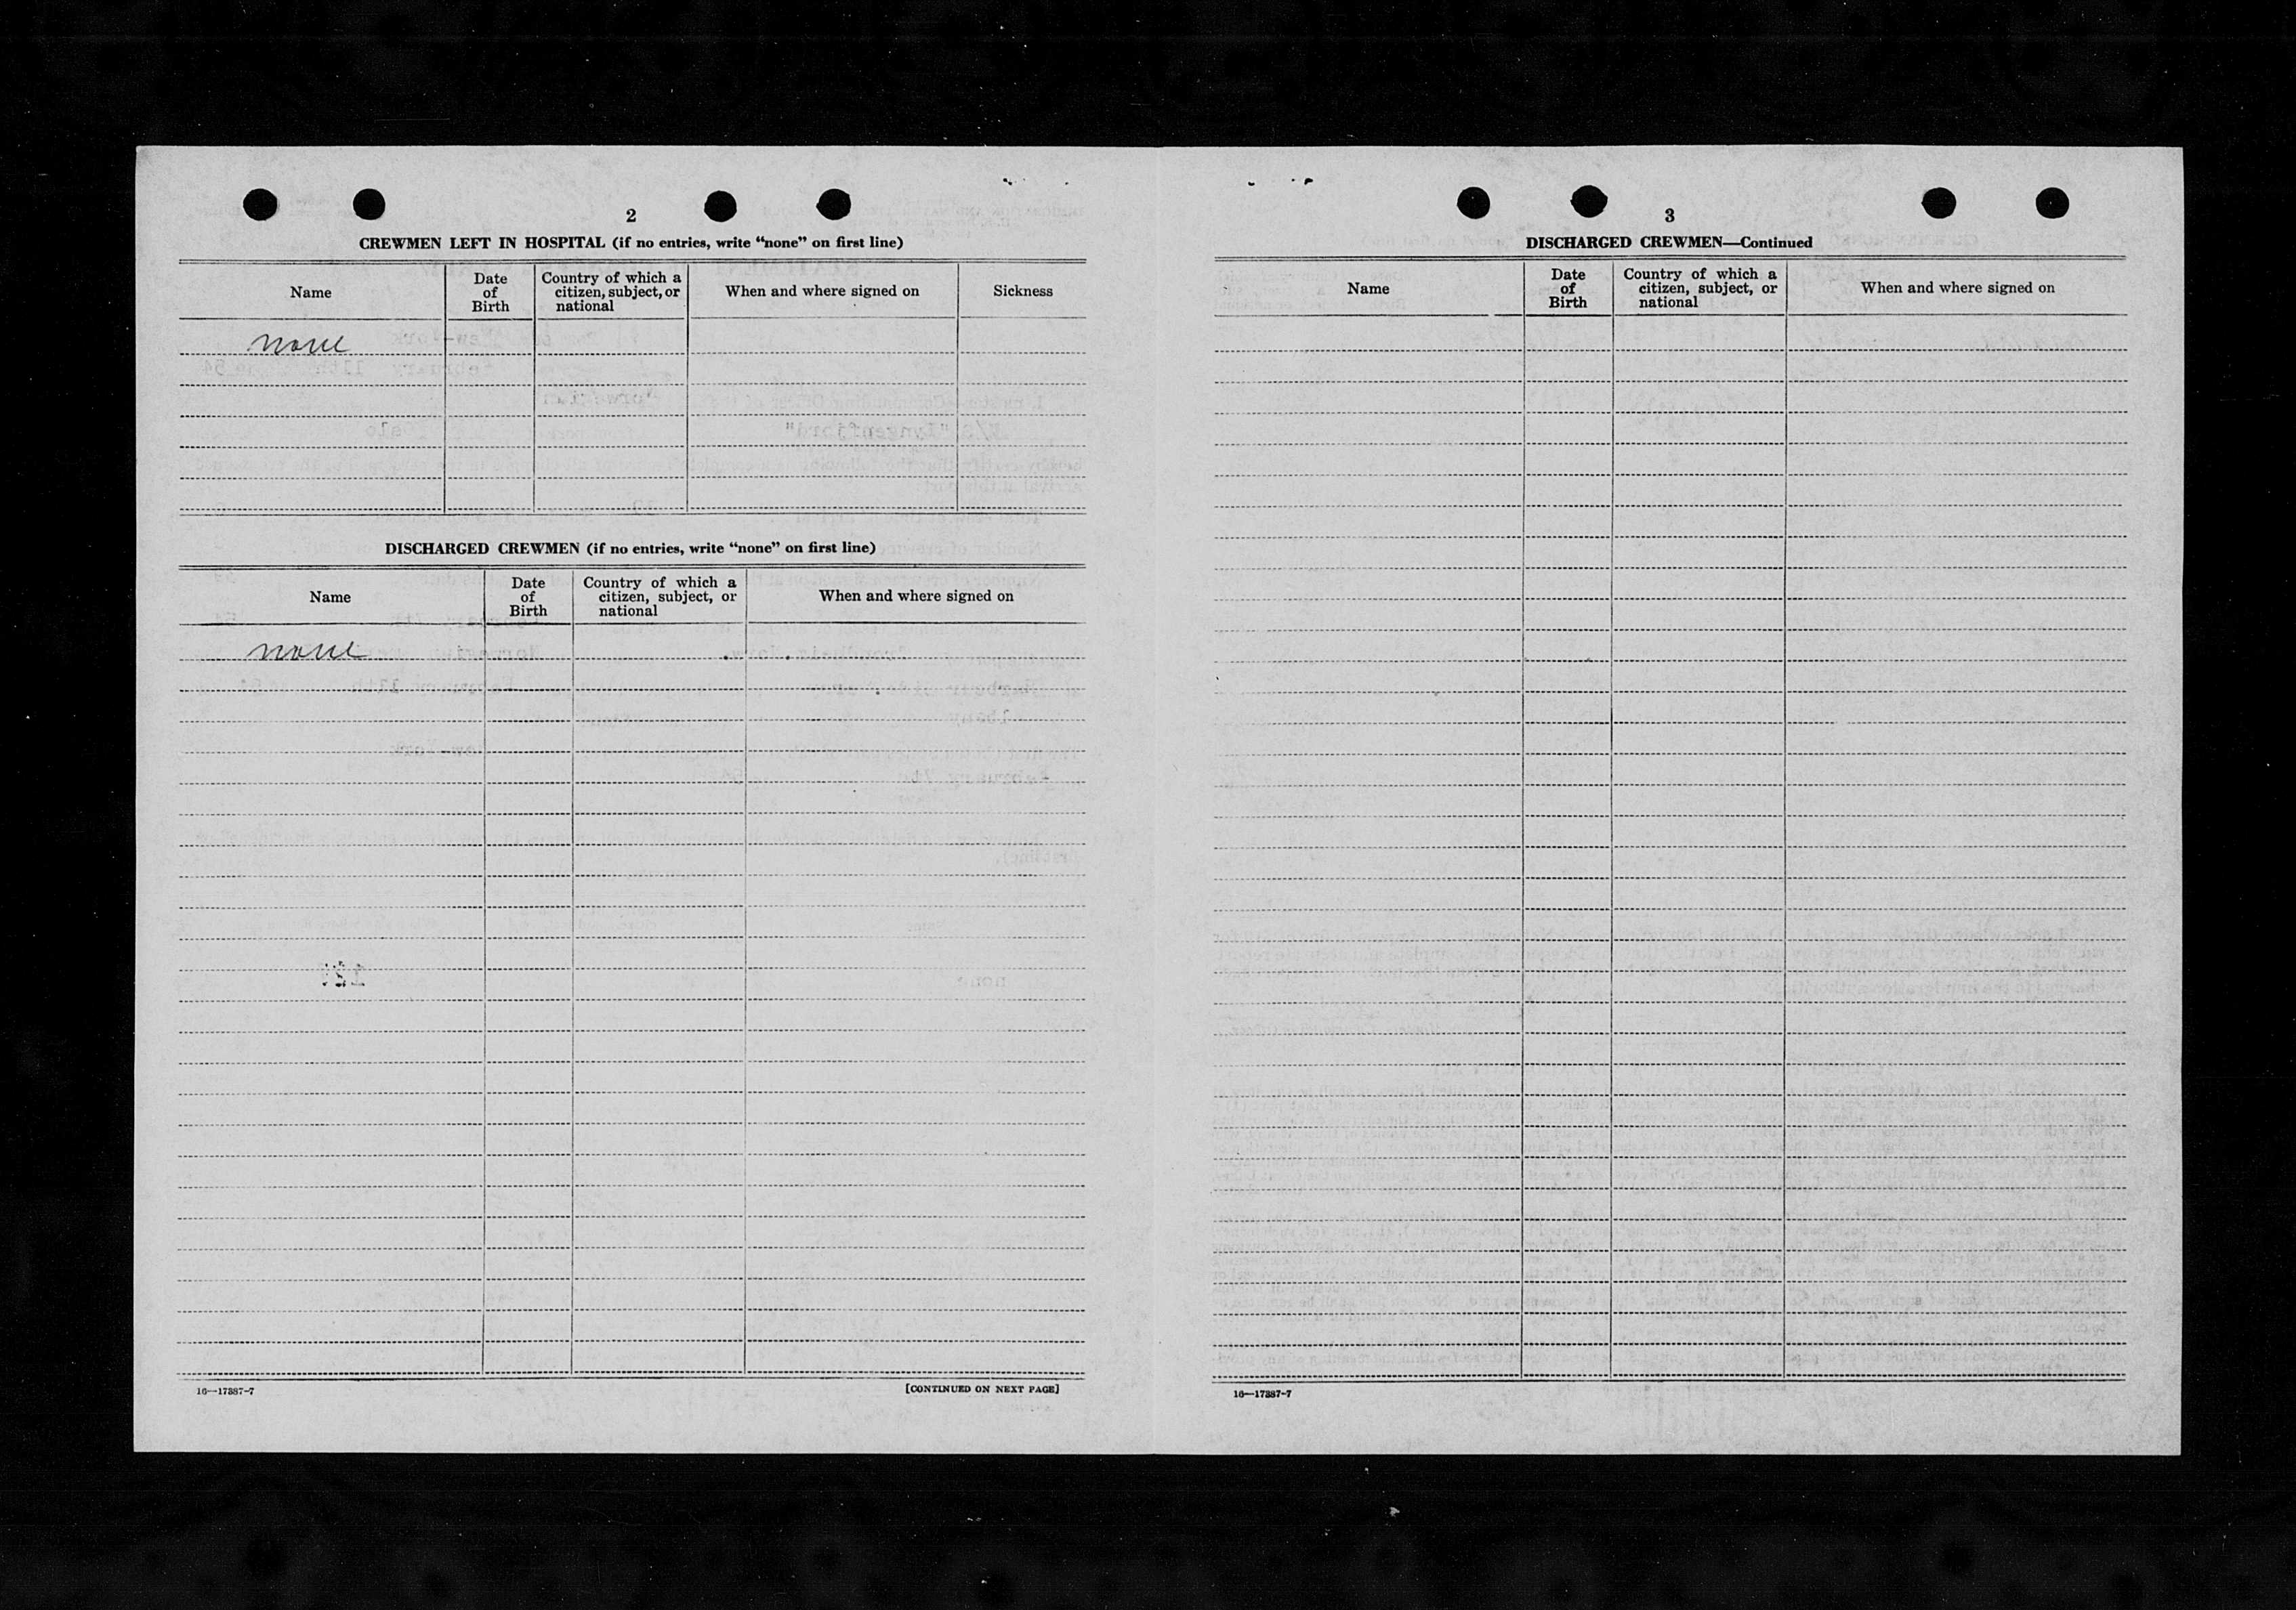 2
CREWMEN LEFT IN HOSPITAL (if no entries, write "none" on first line)
Name
Date of Birth
Country of which a citizen, subject, or national
When and where signed on
Sickness
none
DISCHARGED CREWMEN (if no entries, write "none" on first line)
Name
Date of Birth
Country of which a citizen, subject, or national
When and where signed on
none
16—17387-7
[CONTINUED ON NEXT PAGE]
3
DISCHARGED CREWMEN—Continued
Name
Date of Birth
Country of which a citizen, subject, or national
When and where signed on
16—17387-7